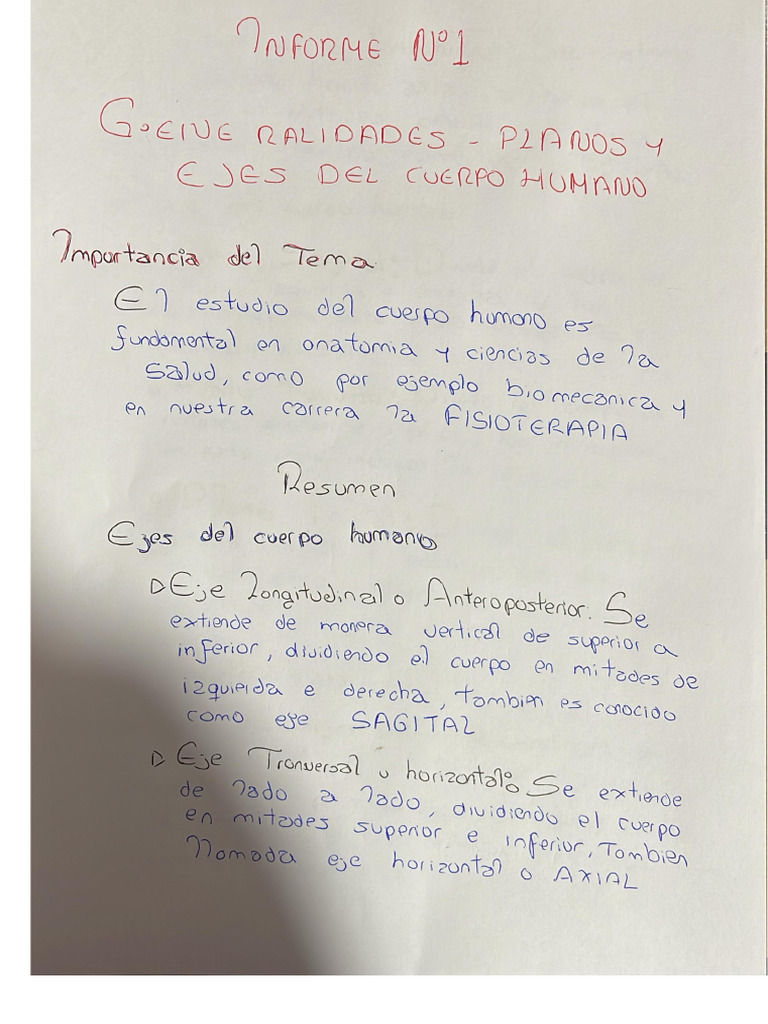 INFORME Nº1
GENERALIDADES - PLANOS Y
EJES DEL CUERPO HUMANO
Importancia del Tema
El estudio del cuerpo humano es
fundamental en anatomia y ciencias de la
Salud, como por ejemplo biomecanica y
en nuestra carrera la FISIOTERAPIA
Resumen
Ejes del cuerpo humano
▷ Eje Longitudinal o Anteroposterior. Se
extiende de manera vertical de superior a
inferior, dividiendo el cuerpo en mitades de
izquierda e derecha, tambien es conocido
como eje SAGITAL
▷ Eje Tranversal u horizontal: Se extiende
de lado a lado, dividiendo el cuerpo
en mitades superior e inferior, Tambien
llamada eje horizontal o AXIAL